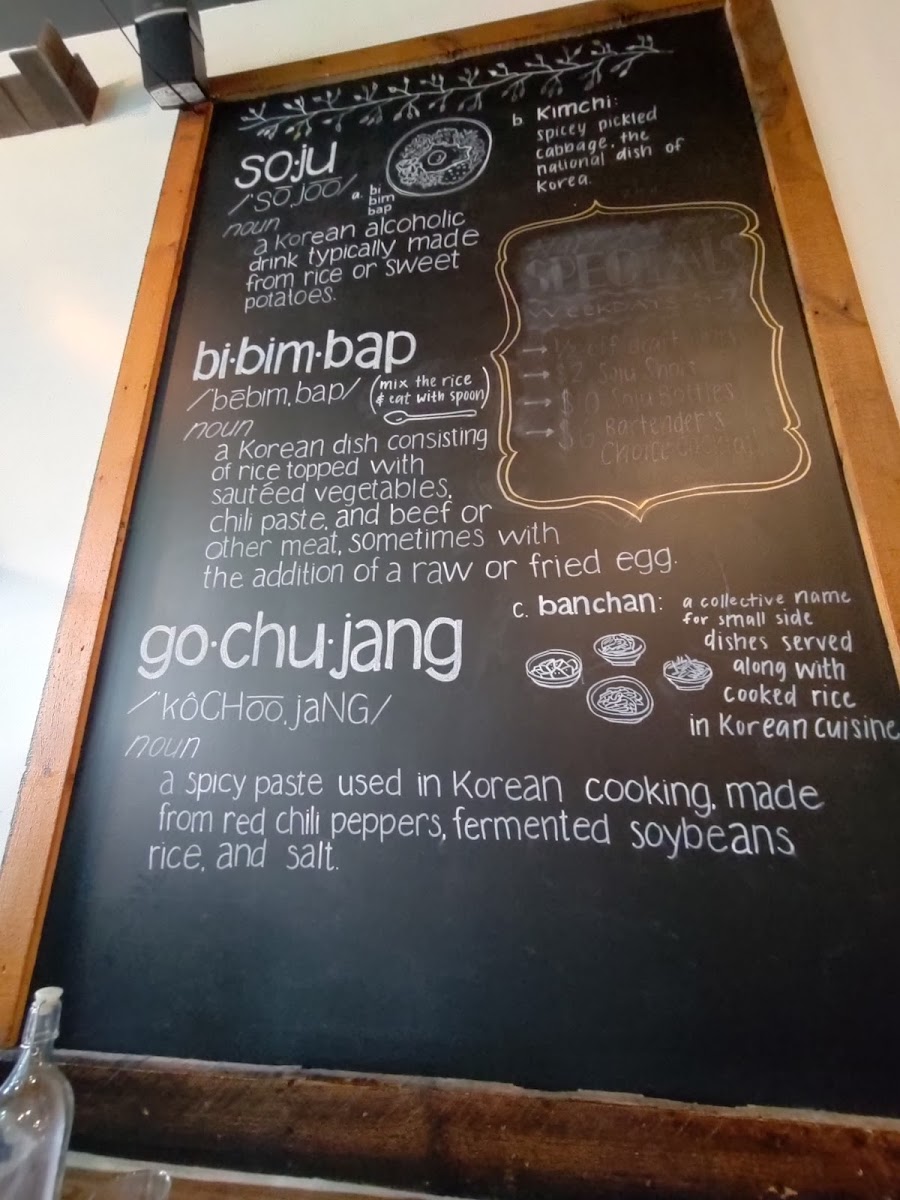 so·ju
/'sō,joo/
noun
a Korean alcoholic
drink typically made
from rice or sweet
potatoes.
a. bi
bim
bap
b Kimchi:
spicey pickled
cabbage. the
national dish of
Korea.
SPECIALS
WEEKDAYS
→ 1/2 off draft
→ $2 Soju Shots
→ $10 Soju Bottles
→ $6 Bartender's
Choice cocktail
bi·bim·bap
/'bēbim,bap/
(mix the rice
& eat with spoon)
noun
a Korean dish consisting
of rice topped with
sautéed vegetables,
chili paste, and beef or
other meat, sometimes with
the addition of a raw or fried egg.
c. banchan: a collective name
for small side
dishes served
along with
cooked rice
in Korean cuisine
go·chu·jang
/'kôCHoo,jaNG/
noun
a spicy paste used in Korean cooking, made
from red chili peppers, fermented soybeans
rice, and salt.